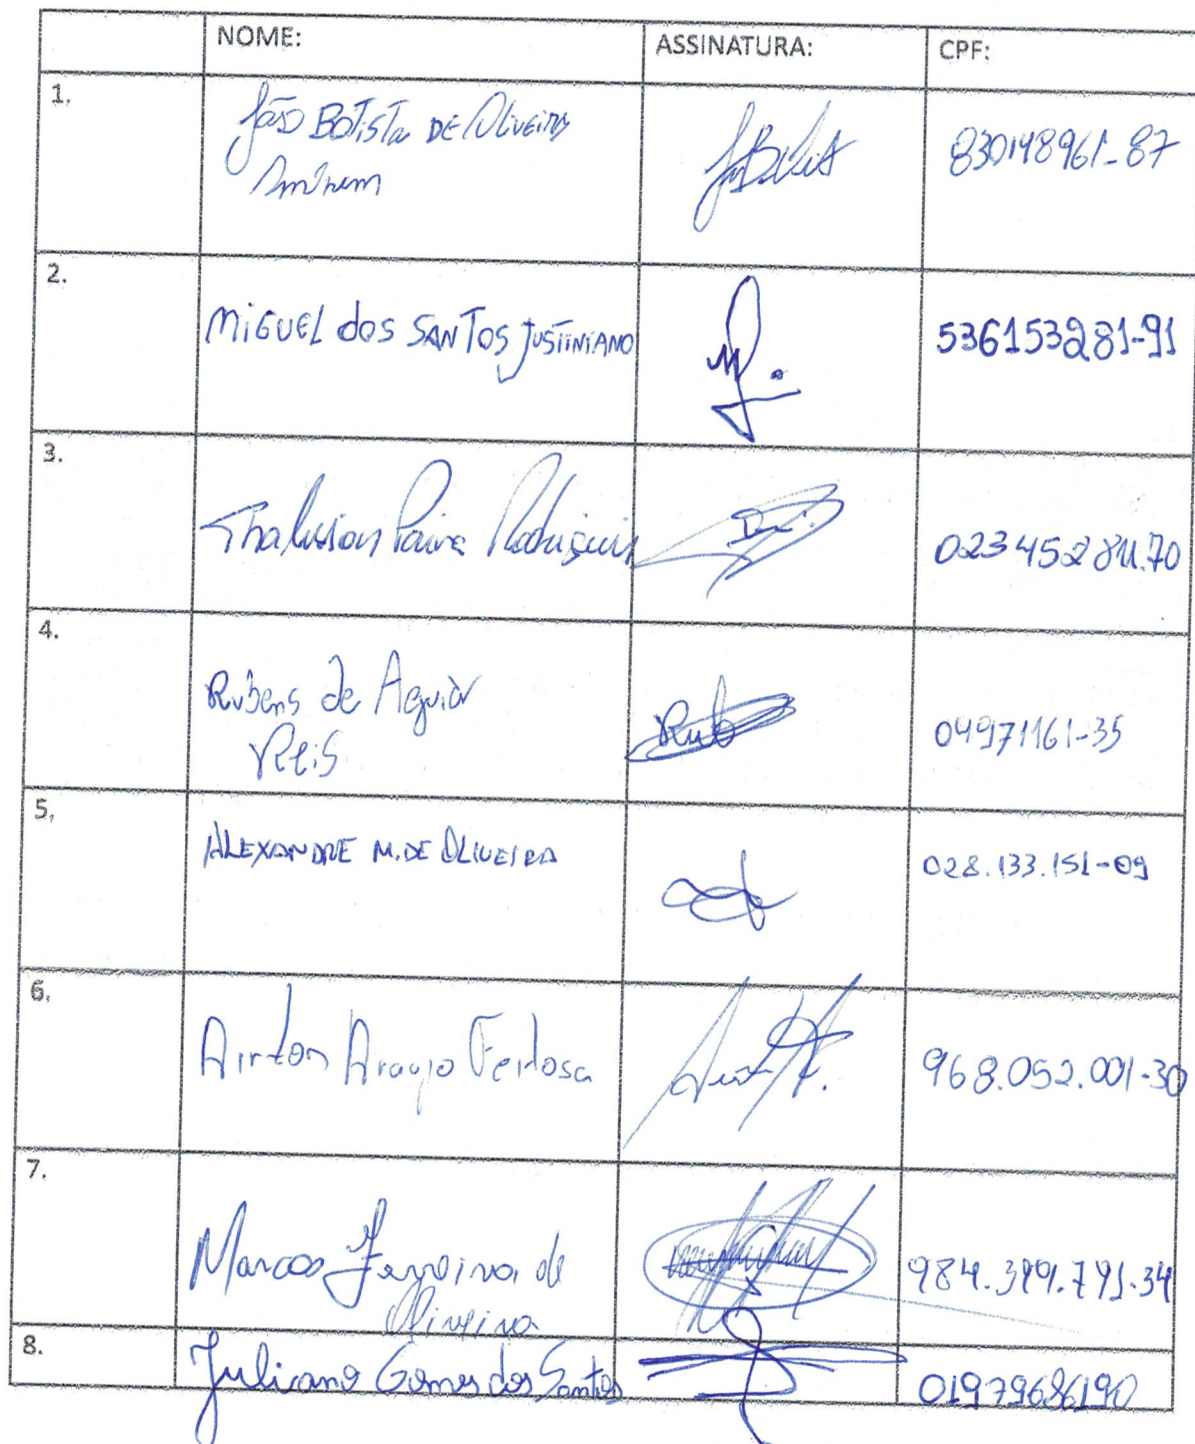 NOME: ASSINATURA: CPF:
1. João BOTISTA DE OLiveira 830148961-87
2. MiGUEL dos SANTOS JUSTINIANO 536153281-91
3. Paiva Rodrigues
4. Rubens de Aguiar Rub 04971161-35
Reis
5. ALEXANDRE M. DE OLIVEIRA 028.133.151-09
6. Airton Araujo Feitosa 968.052.001-30
7. Marcos Ferreira de
Oliveira
8. Juliano Gomes dos Santos 01979686190